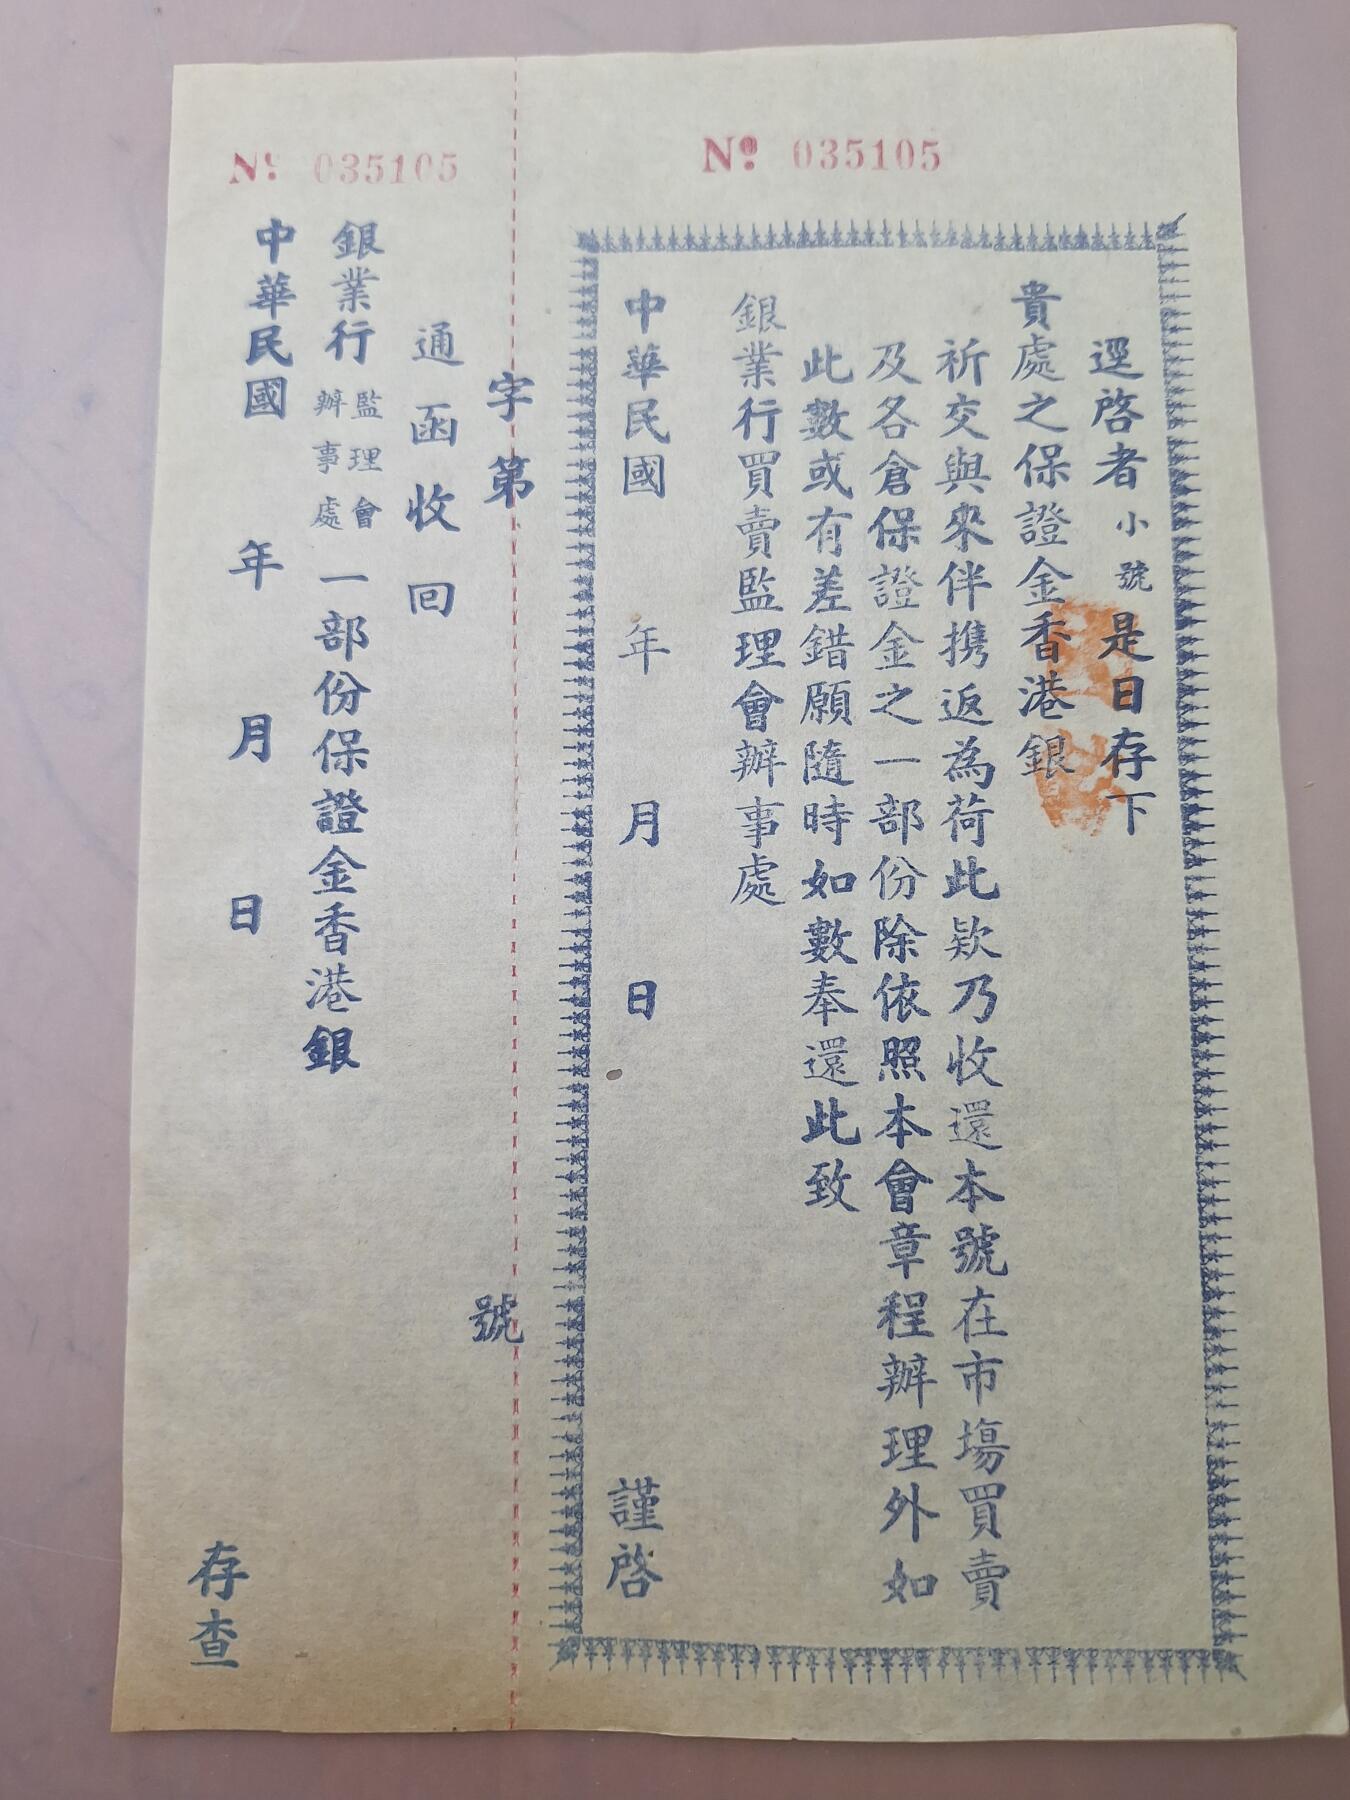 № 035105
逕啓者小號是日存下
貴處之保證金香港銀
祈交與來伴携返為荷此欵乃收還本號在市塲買賣
及各倉保證金之一部份除依照本會章程辦理外如
此數或有差錯願隨時如數奉還此致
銀業行買賣監理會辦事處
中華民國 年 月 日 謹啓
字第 號
№ 035105
通函收回
銀業行監理會辦事處一部份保證金香港銀
中華民國 年 月 日 存查